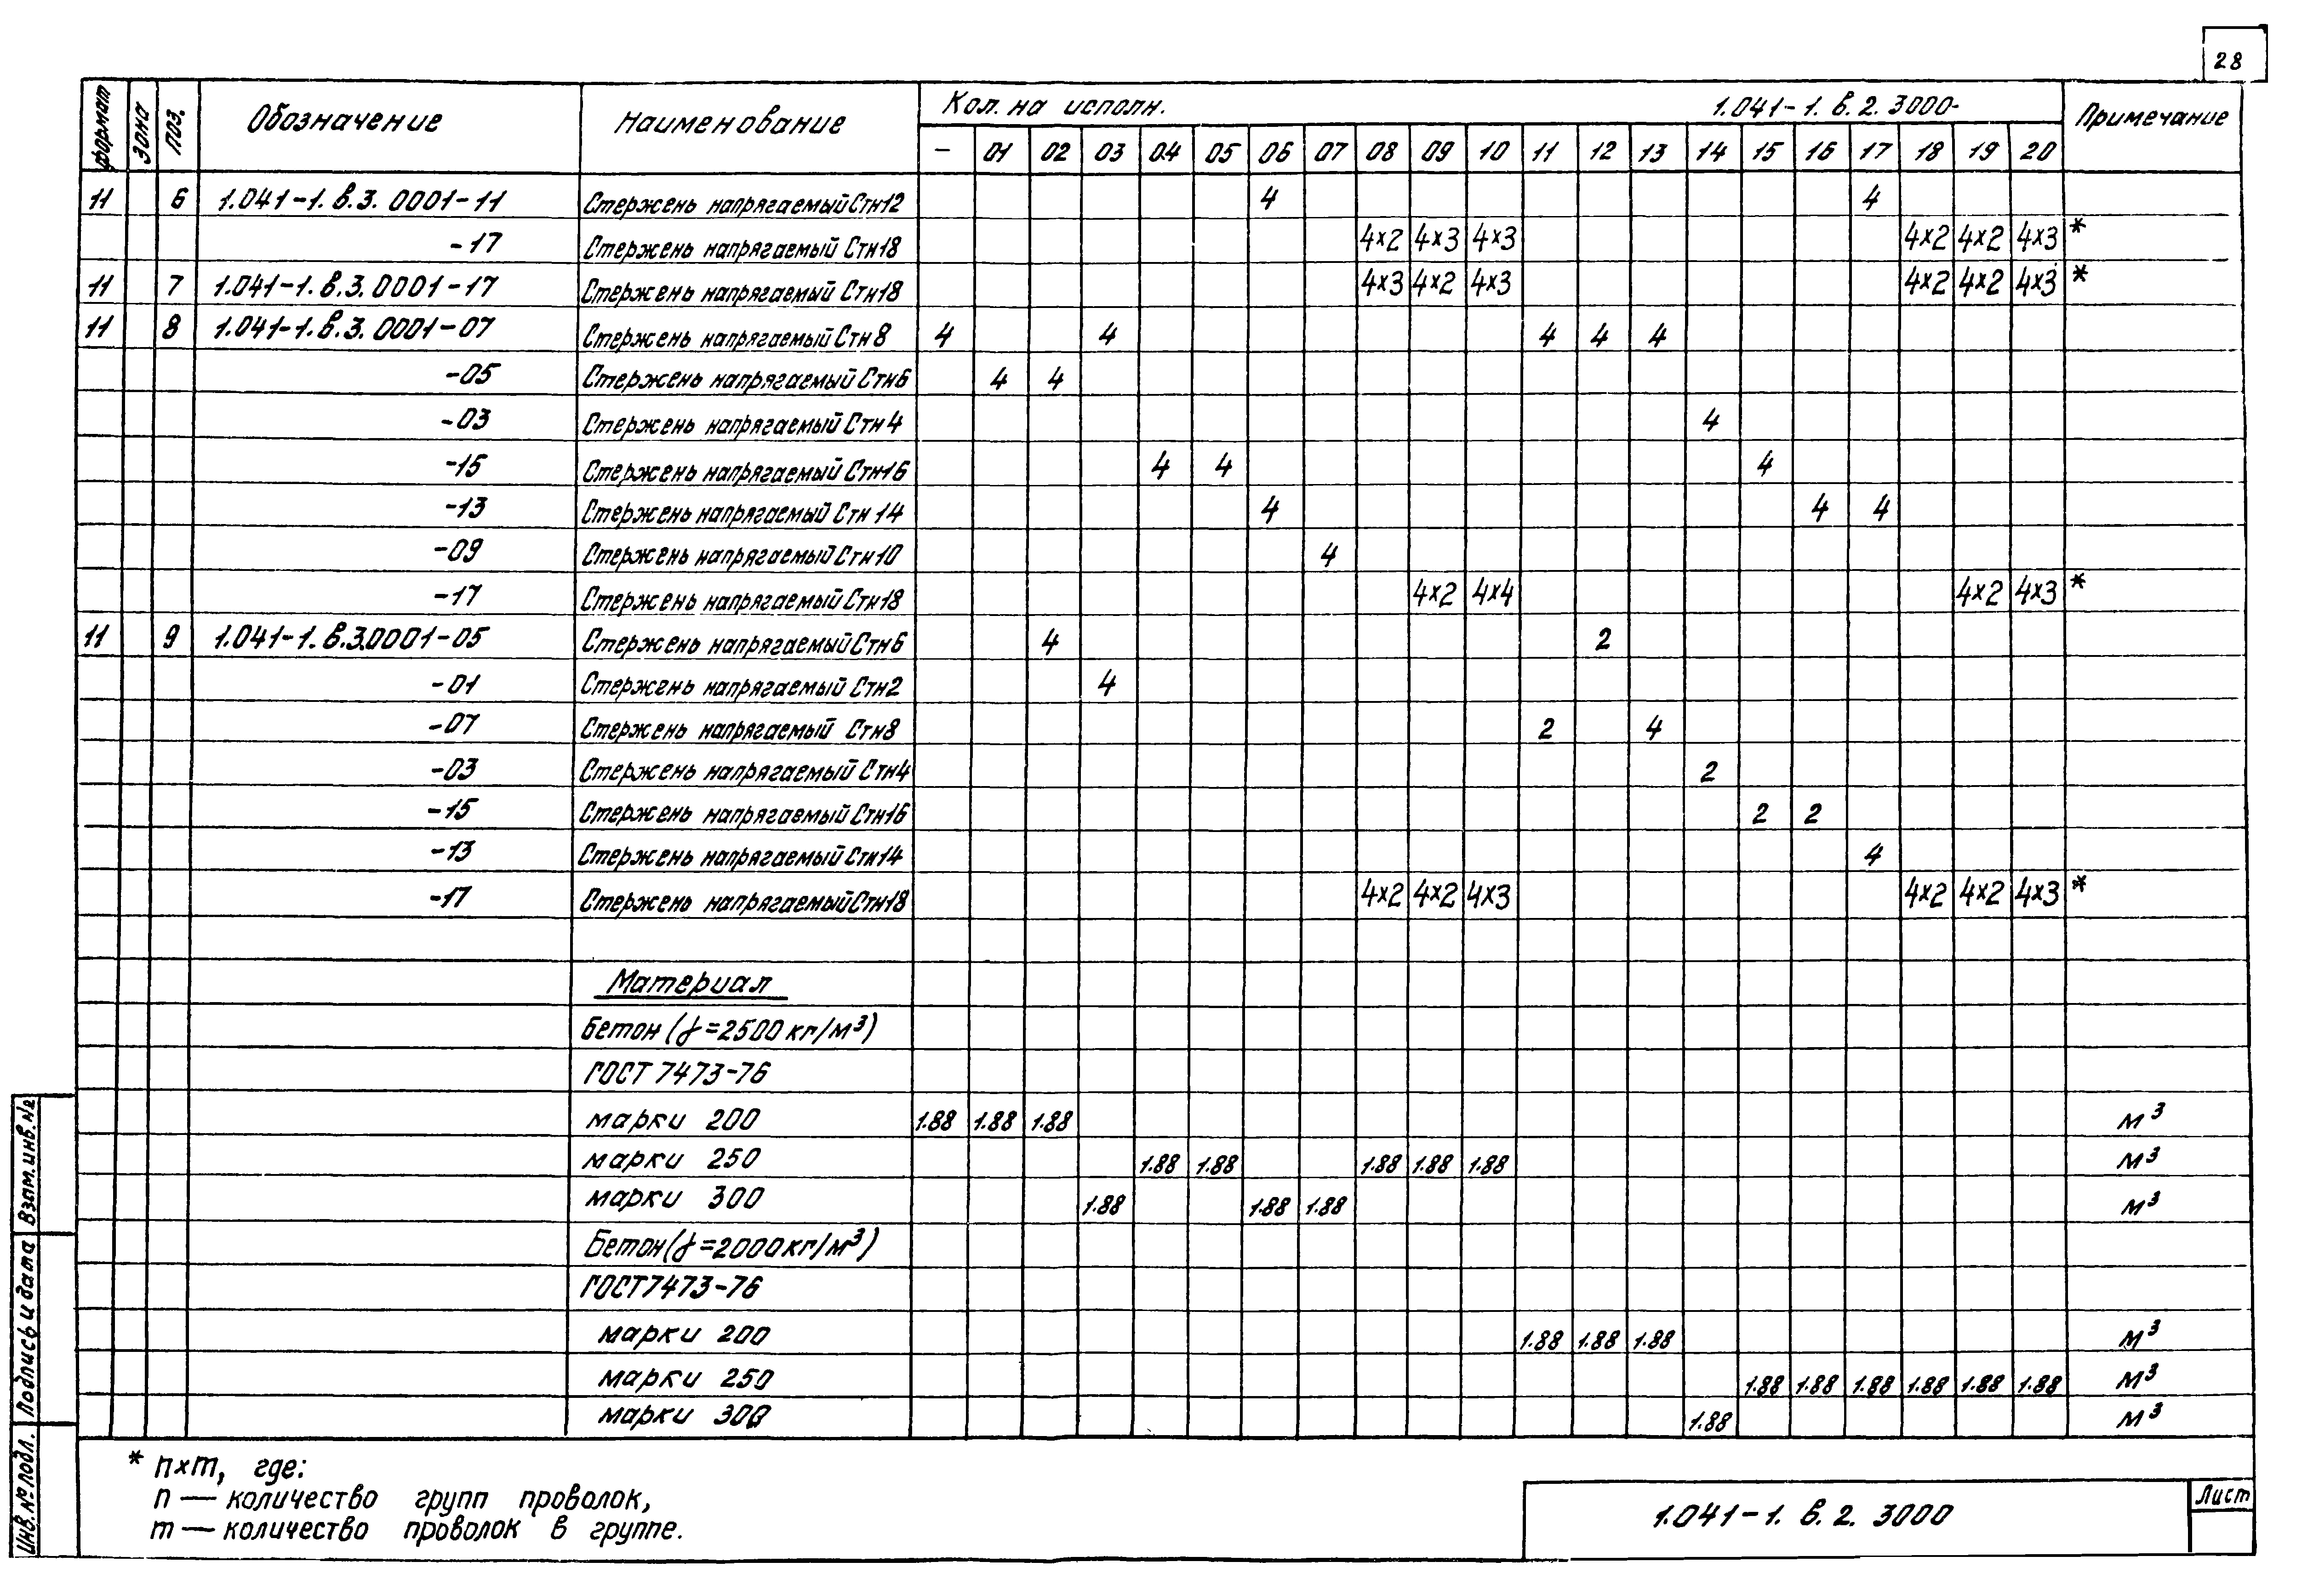 28
формат зона поз. Обозначение Наименование Кол. на исполн. 1.041-1. в. 2. 3000- Примечание
— 01 02 03 04 05 06 07 08 09 10 11 12 13 14 15 16 17 18 19 20
11 6 1.041-1. в.3. 0001-11 Стержень напрягаемый Стн12 4 4
-17 Стержень напрягаемый Стн18 4×2 4×3 4×3 4×2 4×2 4×3 *
11 7 1.041-1. в.3. 0001-17 Стержень напрягаемый Стн18 4×3 4×2 4×3 4×2 4×2 4×3 *
11 8 1.041-1. в.3. 0001-07 Стержень напрягаемый Стн8 4 4 4 4 4
-05 Стержень напрягаемый Стн6 4 4
-03 Стержень напрягаемый Стн4 4
-15 Стержень напрягаемый Стн16 4 4 4
-13 Стержень напрягаемый Стн 14 4 4 4
-09 Стержень напрягаемый Стн10 4
-17 Стержень напрягаемый Стн18 4×2 4×4 4×2 4×3 *
11 9 1.041-1. в.3.0001-05 Стержень напрягаемый Стн6 4 2
-01 Стержень напрягаемый Стн2 4
-07 Стержень напрягаемый Стн8 2 4
-03 Стержень напрягаемый Стн4 2
-15 Стержень напрягаемый Стн16 2 2
-13 Стержень напрягаемый Стн14 4
-17 Стержень напрягаемый Стн18 4×2 4×2 4×3 4×2 4×2 4×3 *
Материал
Бетон (γ=2500 кг/м³)
ГОСТ 7473-76
марки 200 1.88 1.88 1.88 м³
марки 250 1.88 1.88 1.88 1.88 1.88 м³
марки 300 1.88 1.88 1.88 м³
Бетон (γ=2000кг/м³)
ГОСТ7473-76
марки 200 1.88 1.88 1.88 м³
марки 250 1.88 1.88 1.88 1.88 1.88 1.88 м³
марки 300 1.88 м³
* n×m, где:
n — количество групп проволок,
m — количество проволок в группе.
1.041-1. в. 2. 3000
Лист
Взам. инв. №
Подпись и дата
Инв. № подл.